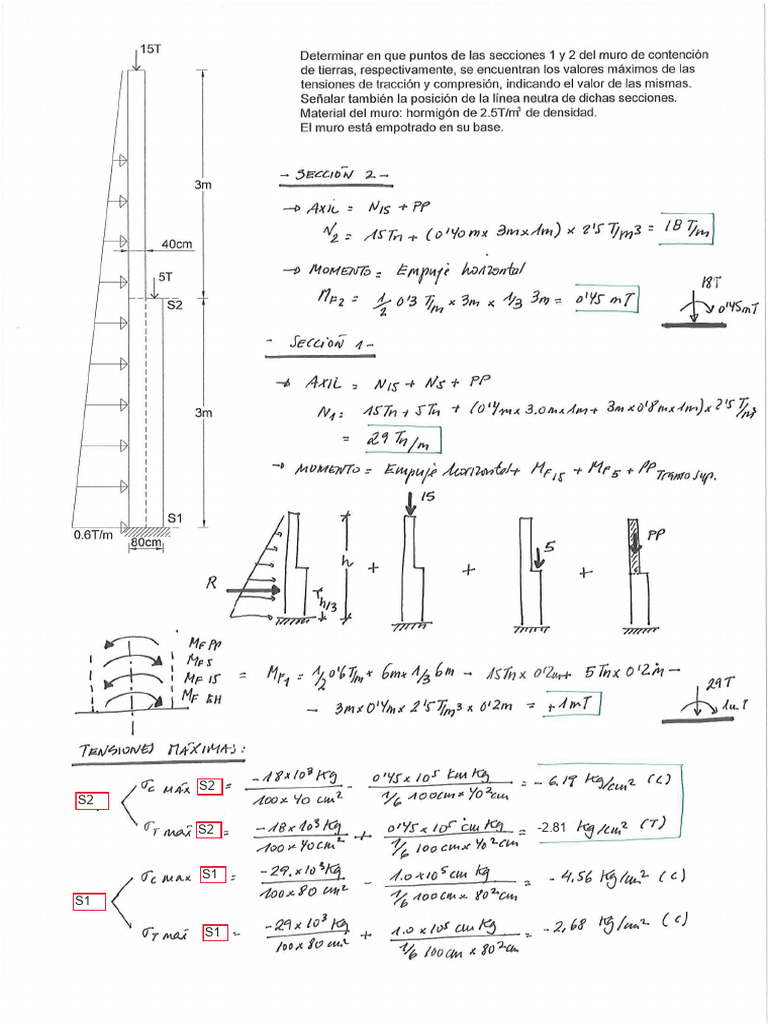 15T
Determinar en que puntos de las secciones 1 y 2 del muro de contención
de tierras, respectivamente, se encuentran los valores máximos de las
tensiones de tracción y compresión, indicando el valor de las mismas.
Señalar también la posición de la línea neutra de dichas secciones.
Material del muro: hormigón de 2.5T/m³ de densidad.
El muro está empotrado en su base.
- SECCIÓN 2 -
3m
→ AXIL = N15 + PP
N2 = 15Tn + (0'40m x 3m x 1m) x 2'5 T/m3 = 18 T/m
40cm
5T
→ MOMENTO = Empuje horizontal
S2
MF2 = 1/2 0'3 T/m x 3m x 1/3 3m = 0'45 mT
18T
0'45mT
- SECCIÓN 1 -
→ AXIL = N15 + N5 + PP
3m
N1 = 15Tn + 5Tn + (0'4m x 3.0m x 1m + 3m x 0'8m x 1m) x 2'5 T/m³
= 29 Tn/m
→ MOMENTO = Empuje horizontal + MF15 + MF5 + PP Tramo sup.
S1
0.6T/m
80cm
15
R
h
h/3
+
+
5
+
PP
MF PP
MF 5
MF 15
MF EH
= MF1 = 1/2 0'6 T/m x 6m x 1/3 6m - 15Tn x 0'2m + 5Tn x 0'2m -
- 3m x 0'4m x 2'5 T/m3 x 0'2m = +1mT
29T
1mT
TENSIONES MÁXIMAS:
S2
σc MÁX S2 = -18x10³ Kg / 100x40 cm² - 0'45x10⁵ cmKg / 1/6 100cm x 40²cm = -6.19 Kg/cm² (C)
σT máx S2 = -18x10³ Kg / 100x40cm² + 0'45x10⁵ cmKg / 1/6 100cm x 40²cm = -2.81 Kg/cm² (T)
S1
σc max S1 = -29.x10³ Kg / 100x80 cm² - 1.0x10⁵ cm Kg / 1/6 100cm x 80²cm = -4,56 Kg/cm² (C)
σT máx S1 = -29x10³ Kg / 100x80cm² + 1.0x10⁵ cm Kg / 1/6 100cm x 80²cm = -2,68 Kg/cm² (C)